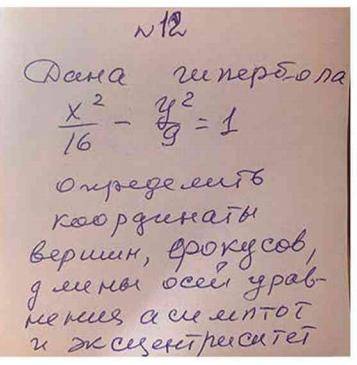 №12
Дана гипербола
x²/16 - y²/9 = 1
определить
координаты
вершин, фокусов,
длины осей урав-
нения асимптот
и эксцентриситет